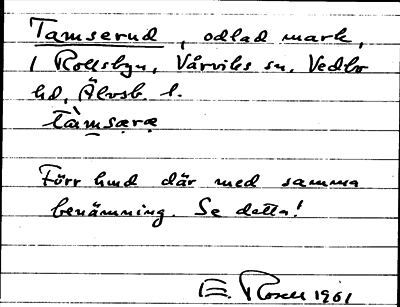 Tamserud, odlad mark,
i Rollsbyn, Vårviks sn. Vedbo
hd, Älvsb. l.
tàmsæræ
Förr hmd där med samma
benämning. Se detta!
E. Rosell 1961